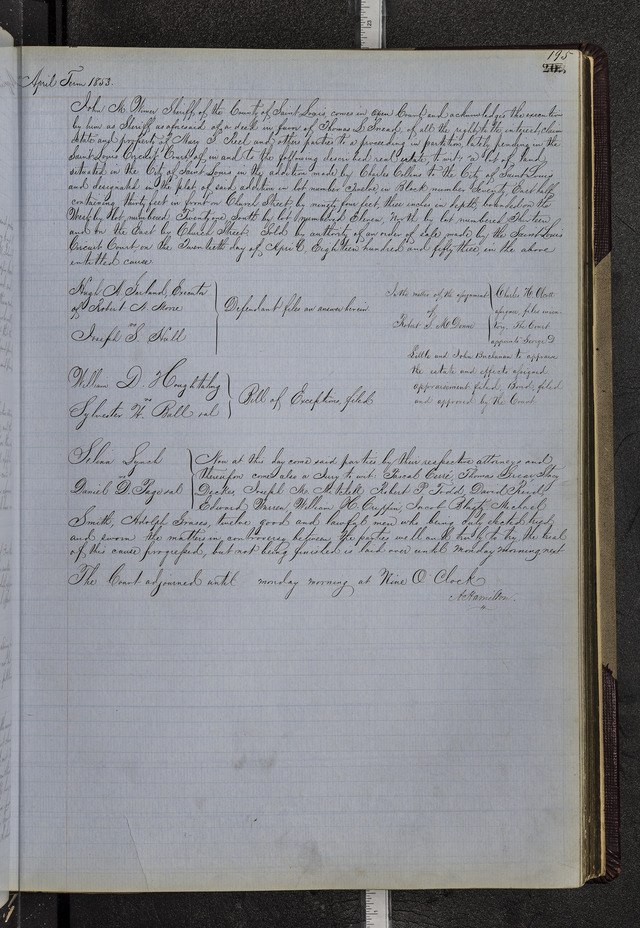 195
203
April Term 1853.
John M. Wimer Sheriff of the County of Saint Louis, comes in open Court, and acknowledges the execution
by him as Sheriff as aforesaid of a deed in favor of Thomas L. of all the right title interest, claim
estate and property of Mary and other parties to a proceeding in partition, lately pending in the
Saint Louis Circuit Court of, in and to the following described real estate, to wit: a lot of land
situated in the City of Saint Louis, in the addition made by Charles Collins to the City of Saint Louis
and designated in the plat of said addition as lot number Twelve in Block number Twenty East half
containing thirty feet in front on Church Street, by ninety four feet three inches in depth, bounded on the
West by lot numbered Twenty one South by lot numbered Eleven, North by lot numbered Thirteen
and on the East by Church Street. Sold by authority of an order of sale made by the Saint Louis
Circuit Court on the Twentieth day of April, Eighteen hundred and fifty three, in the above
entitled cause
Hugh A. Garland, Executor
of Robert N. Moore
vs
Joseph S. Hull
Defendant files an answer herein
In the matter of the assignment
of
Robert S. McDonne
Charles H.
assignee, files inven-
tory. The Court
appoints George D.
Little and John Buchanan to appraise
the estate and effects assigned
appraisement filed, Bond, filed
and approved by the Court.
William D.
vs
Sylvester H. Ball et al
Bill of Exceptions, filed
Lynch
vs
Daniel D. Page et al
Now at this day come said parties by their respective attorneys and
thereupon comes also a Jury to wit: Pascal Thomas
Decker, Joseph Robert P. Todd, David
Edward Warren, William H. Jacob Michael
Smith, Adolph twelve good and lawful men who being duly elected tried
and sworn the matters in controversy between the parties well and truly to try the trial
of this cause progressed, but not being finished is laid over until Monday morning next
The Court adjourned until monday morning at Nine O Clock
A Hamilton.